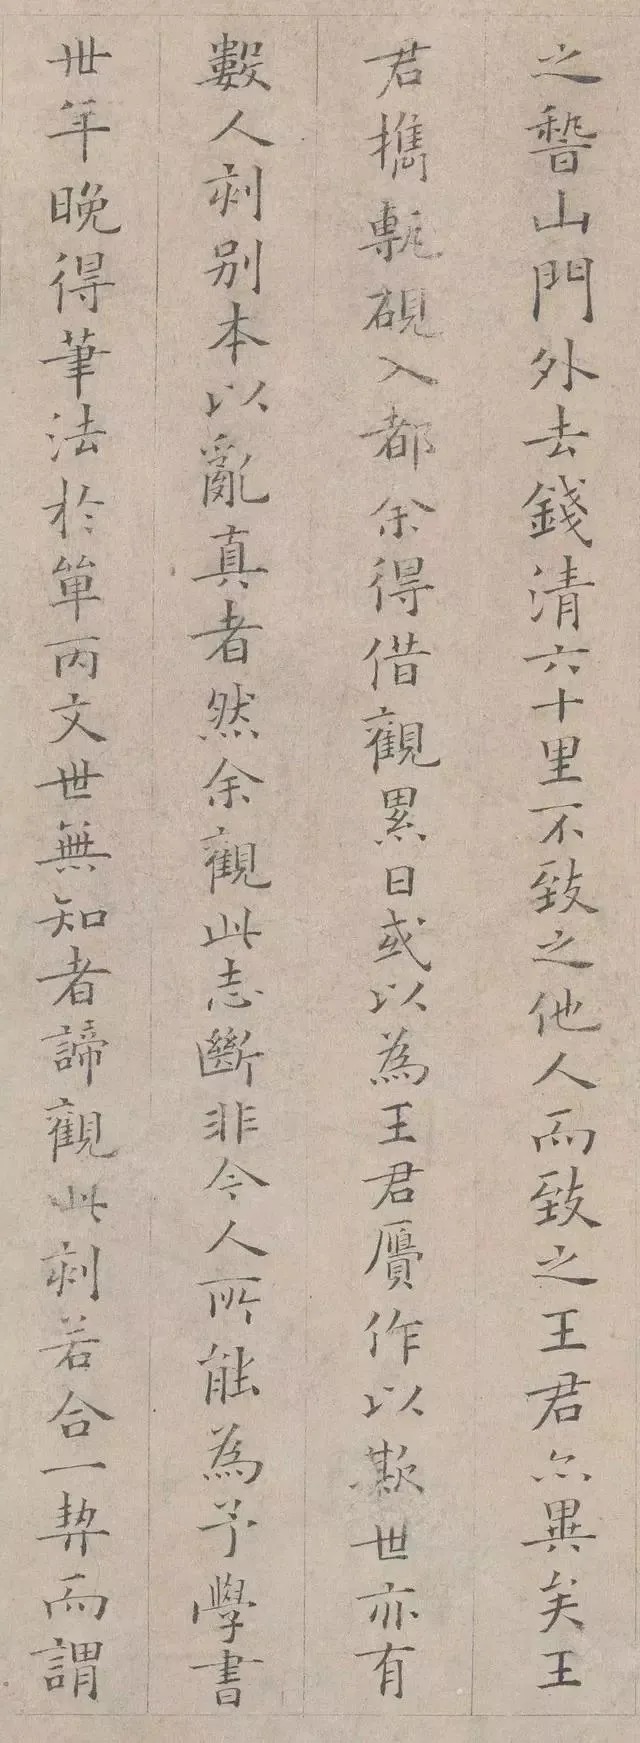 之稽山門外去錢清六十里不致之他人而致之王君亦異矣王
君携甎硯入都余得借觀累日或以為王君贗作以欺世亦有
數人刻別本以亂真者然余觀此志斷非今人所能為予學書
卅年晚得筆法於單丙文世無知者諦觀此刻若合一契而謂